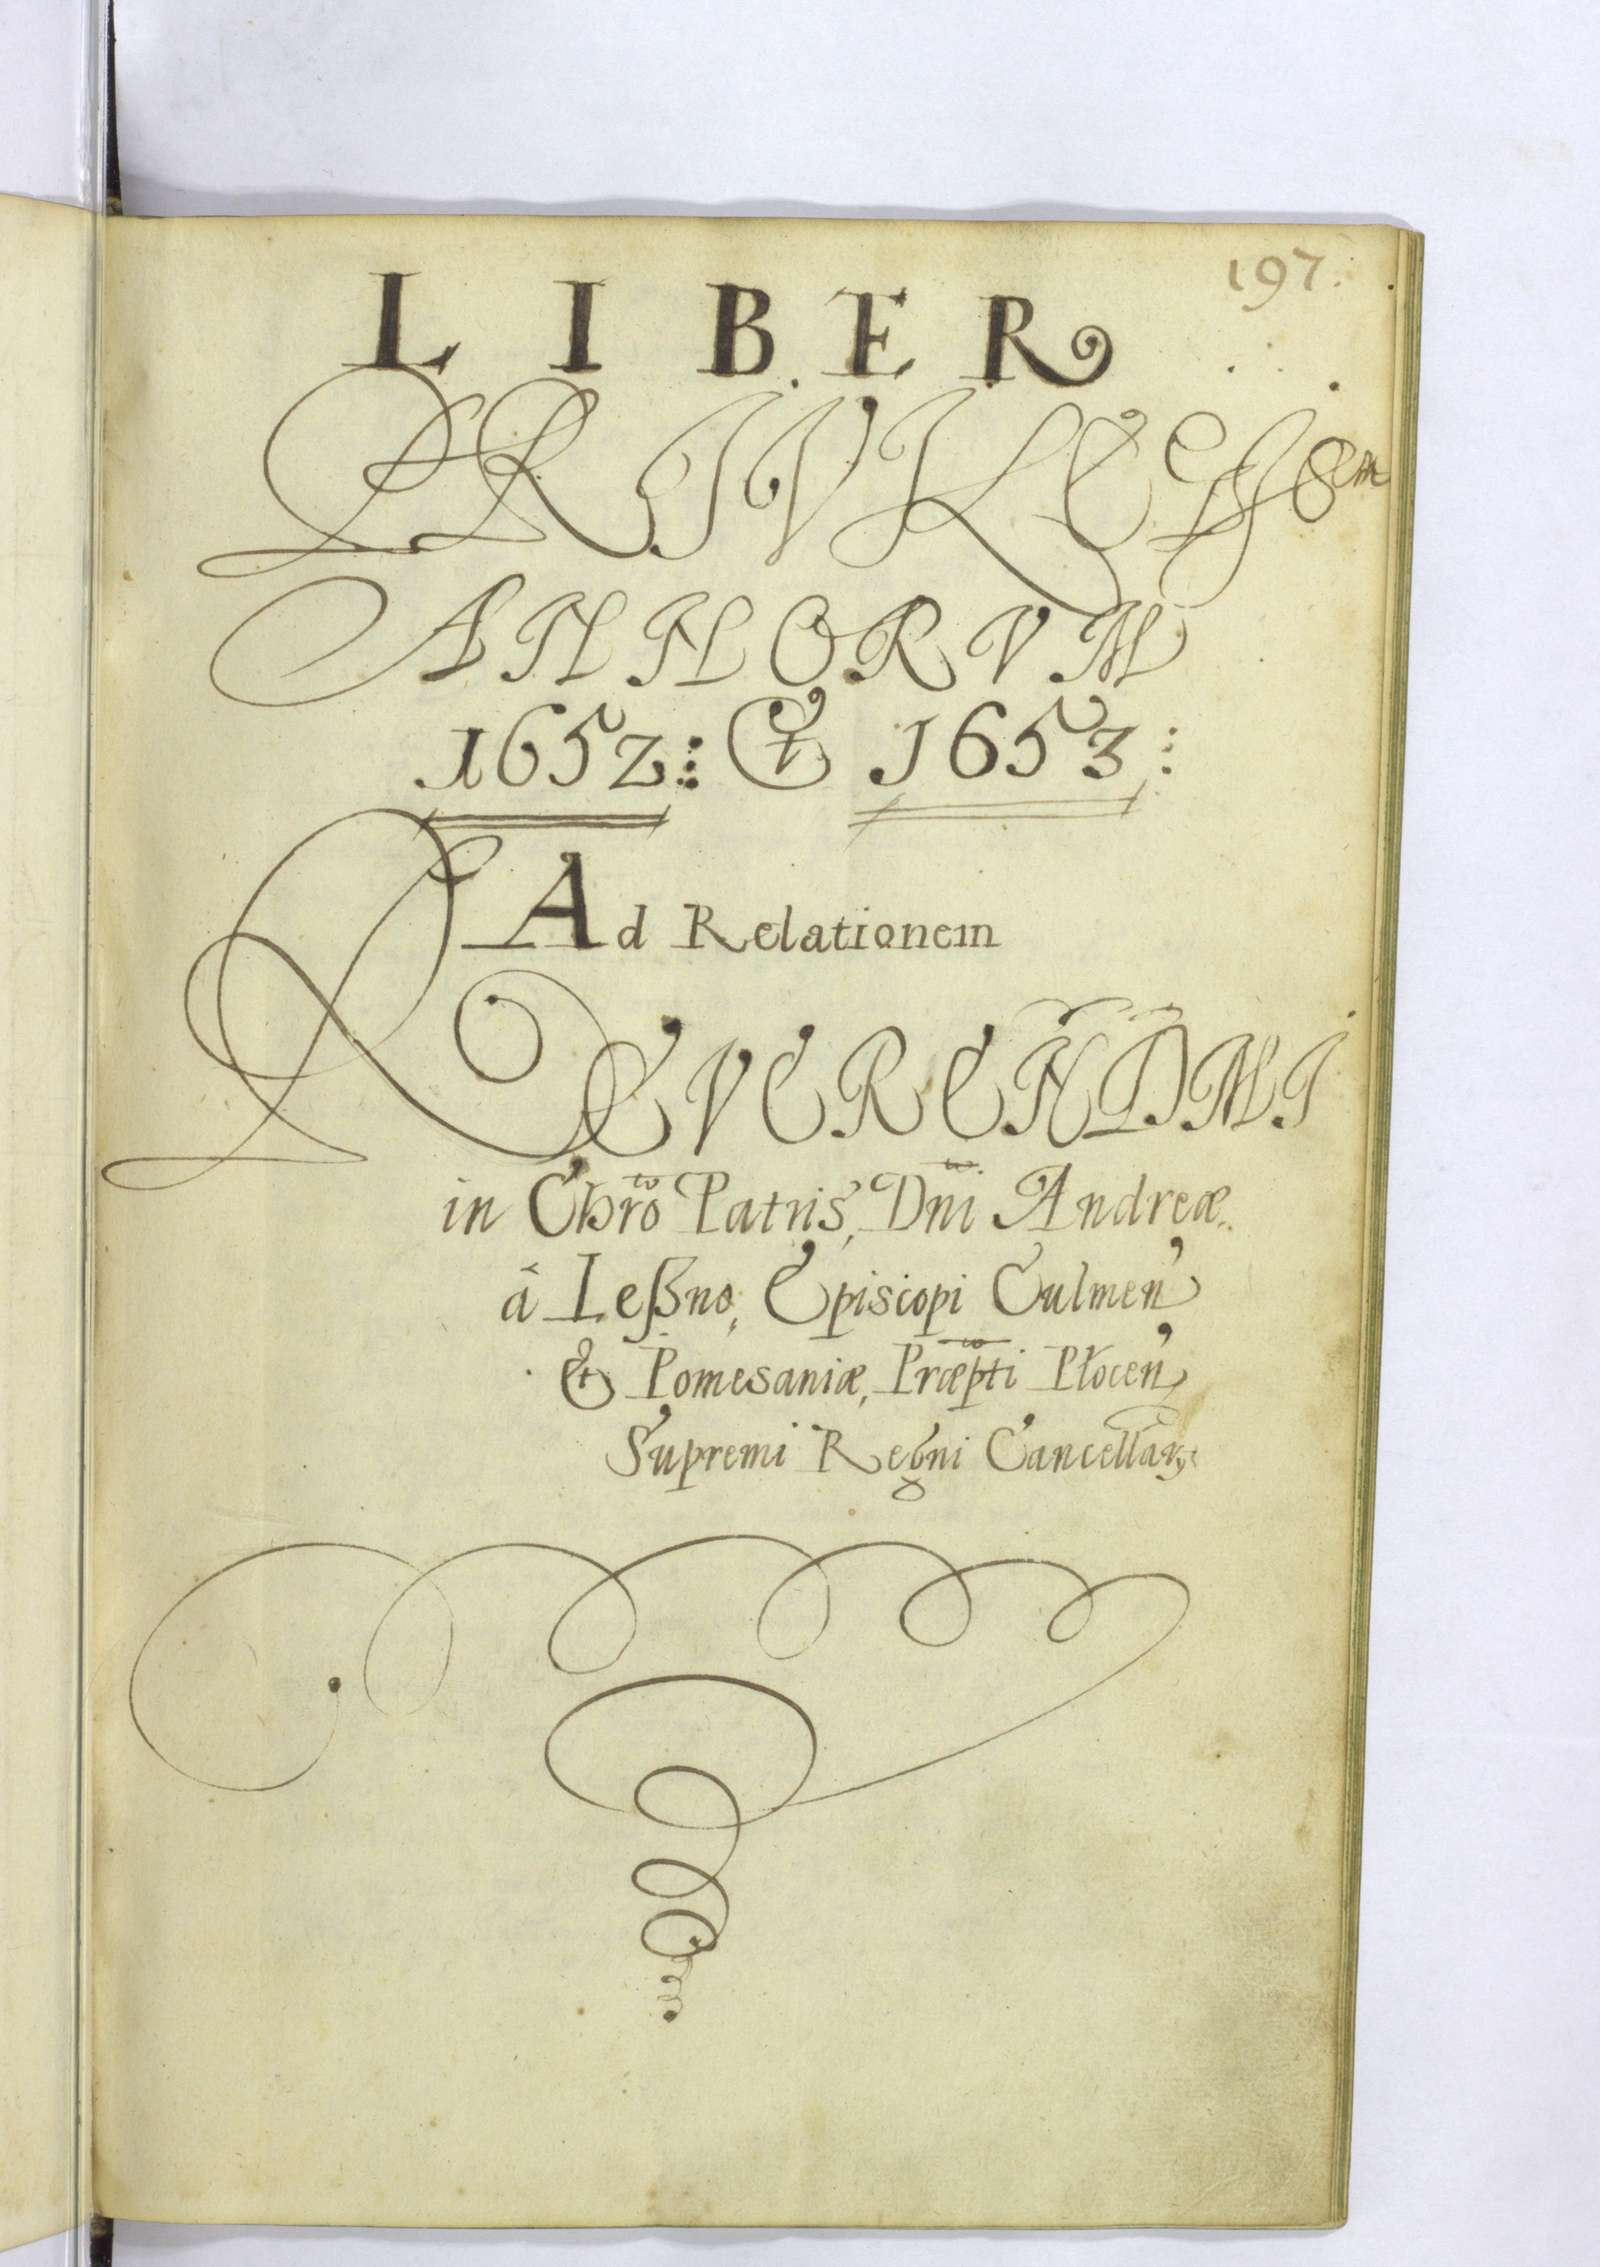 197.
LIBER
PRIVILEGIOR̃m
ANNORVM
1652: & 1653:
Ad Relationem
REVERENDMI
in Chro Patris, Dni Andreæ
â Leßno, Episcopi Culmen
& Pomesaniæ, Præpti Płocen
Supremi Regni Cancellarij